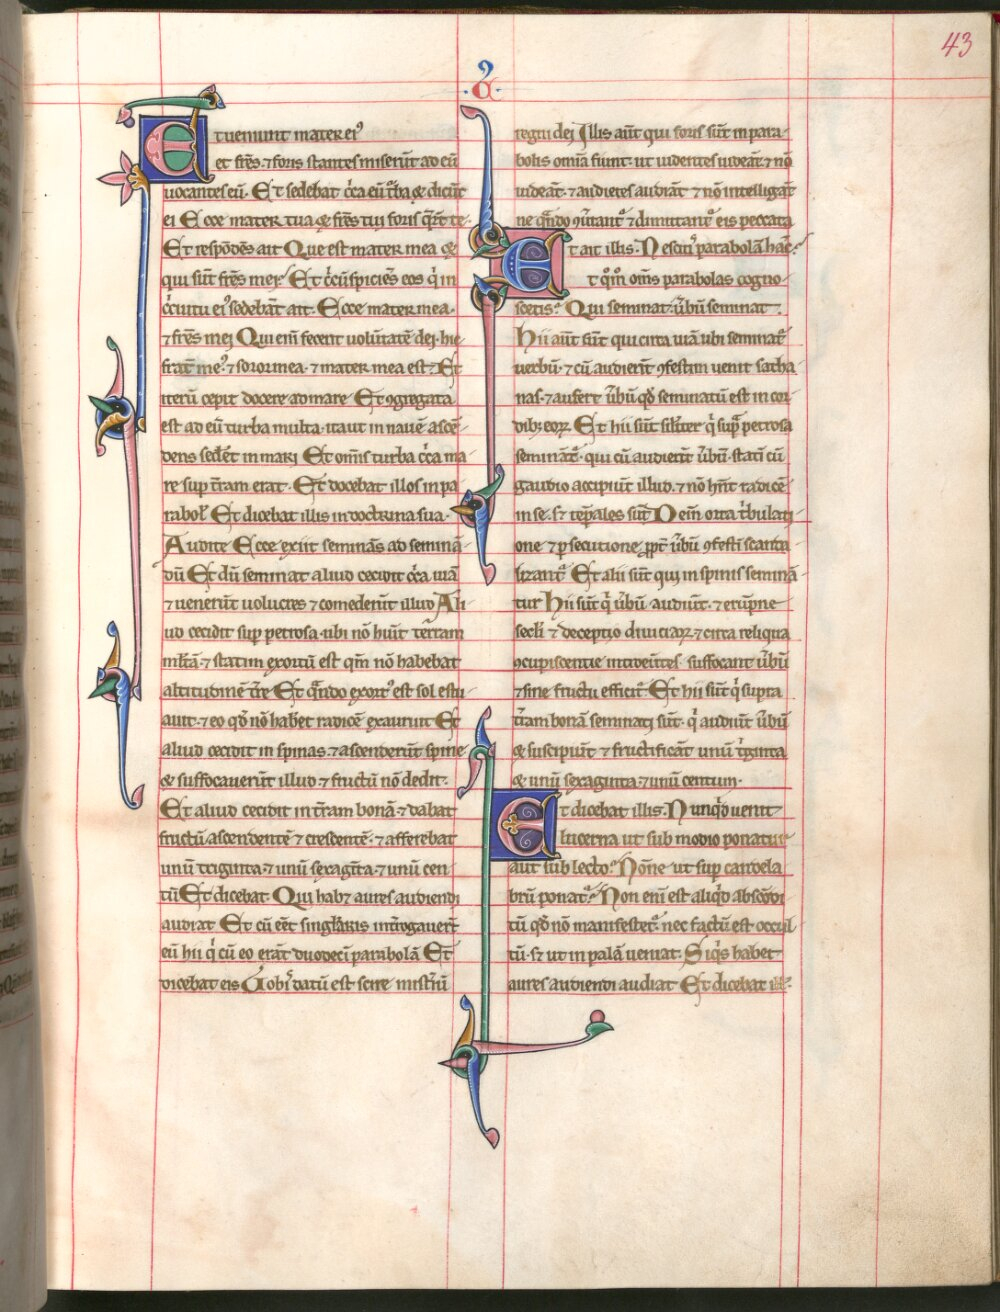 43
·a·
Et ueniunt mater ei᾽
et fr̄es · ⁊ foris stantes miserūt ad eū
uocantes eū · Et sedebat c̊ca eū t̄ba & dicūt
ei Ecce mater tua & fr̄es tui foris q̄rt te ·
Et respōdēs ait Que est mater mea &
qui sūt fr̄es mei Et c̊cūspiciēs eos q̇ in
c̊cuitu ei᾽ sedebāt ait · Ecce mater mea ·
⁊ fr̄es mei Qui eni fecerit uolūtatē dei · hic
frat̄ me᾽ · ⁊ soror mea · ⁊ mater mea est · Et
iterū cepit docere ad mare Et ꝯgregata
est ad eū turba multa · ita ut in nauē ascē-
dens sed̄et in mari Et omīs turba c̊ca ma
re sup t̄ram erat · Et docebat illos in pa
rabol̄ Et dicebat illis in doctrina sua ·
Audite Ecce exiit seminās ad seminā-
dū Et dū seminat aliud cecidit c̊ca uiā
⁊ uenerūt uolucres ⁊ comederūt illud Ali
ud cecidit sup petrosa · ubi nō h̄uit terram
ml̄tā · ⁊ statim exortū est qm̄ nō habebat
altitudinē t̄re Et q̄ndo exort᾽ est sol estu
auit · ⁊ eo qđ nō haƀet radicē exaruit Et
aliud cecidit in spinas · ⁊ ascenderūt spine
& suffocauerūt illud · ⁊ fructū nō dedit ·
Et aliud cecidit in t̄ram bonā · ⁊ dabat
fructū ascendentē ⁊ crescentē · ⁊ afferebat
unū triginta · ⁊ unū sexagīta · ⁊ unū cen
tū Et dicebat · Qui habꝫ aures audiendi
audiat Et cū eēt singl̄aris int̄rogauer̄t
eū hii q̇ cū eo erāt duodeci parabolā Et
dicebat eis Uobis datū est scire mist̄iū
regni dei Illis aūt qui foris sūt in para-
bolis omīa fiunt · ut uidentes uideāt · ⁊ nō
uideāt · ⁊ audiētes audiāt ⁊ nō intelligāt
ne q̄ndo ꝯūtant᾽ ⁊ dimittant᾽ eis peccata
Et ait illis · Nescitis parabolā hāc ·
Et qm̊ om̄s parabolas cogno-
scetis · Qui seminat · ūbū seminat ·
Hii aūt sūt qui circa uiā ubi seminat᾽
uerbū · ⁊ cū audierīt ꝯfestim uenit satha
nas · ⁊ aufert ūbū qđ seminatū est in cor
dibꝫ eoꝝ Et hii sūt sil̄iter q̇ sup petrosa
semināt᾽ · qui cū audierīt ūbū · stati cū
gaudio accipiūt illud · ⁊ nō h̄nt radicē
in se · sꝫ tēp̄ales sūt Dein orta t̄bulati-
one ⁊ p̱secutione ꝓpt̄ ūbū ꝯfesti scanda-
lizant᾽ Et alii sūt qui in spinis seminā-
tur Hii sūt q̇ ūbū · audiūt · ⁊ erūpne
seclī ⁊ deceptio diuiciaꝝ · ⁊ circa reliqua
ꝯcupiscentie introeūtes · suffocant ūbū
⁊ sine fructu efficit᾽ Et hii sūt q̇ supra
t̄ram bonā seminati sūt · q̇ audiūt ūbū
& suscipiūt ⁊ fructificāt unū t̊ginta
& unū sexaginta · ⁊ unū centum ·
Et dicebat illis · Nunqđ uenit
lucerna ut sub modio ponatur
aut sub lecto · Nōne ut sup candela
brū ponat᾽ · Non eni est aliqđ abscōdi
tū qđ nō manifestet᾽ · nec factū est occul
tū · sꝫ ut in palā ueniat · Siq̇s habet
aures audiendi audiat Et dicebat ill ·